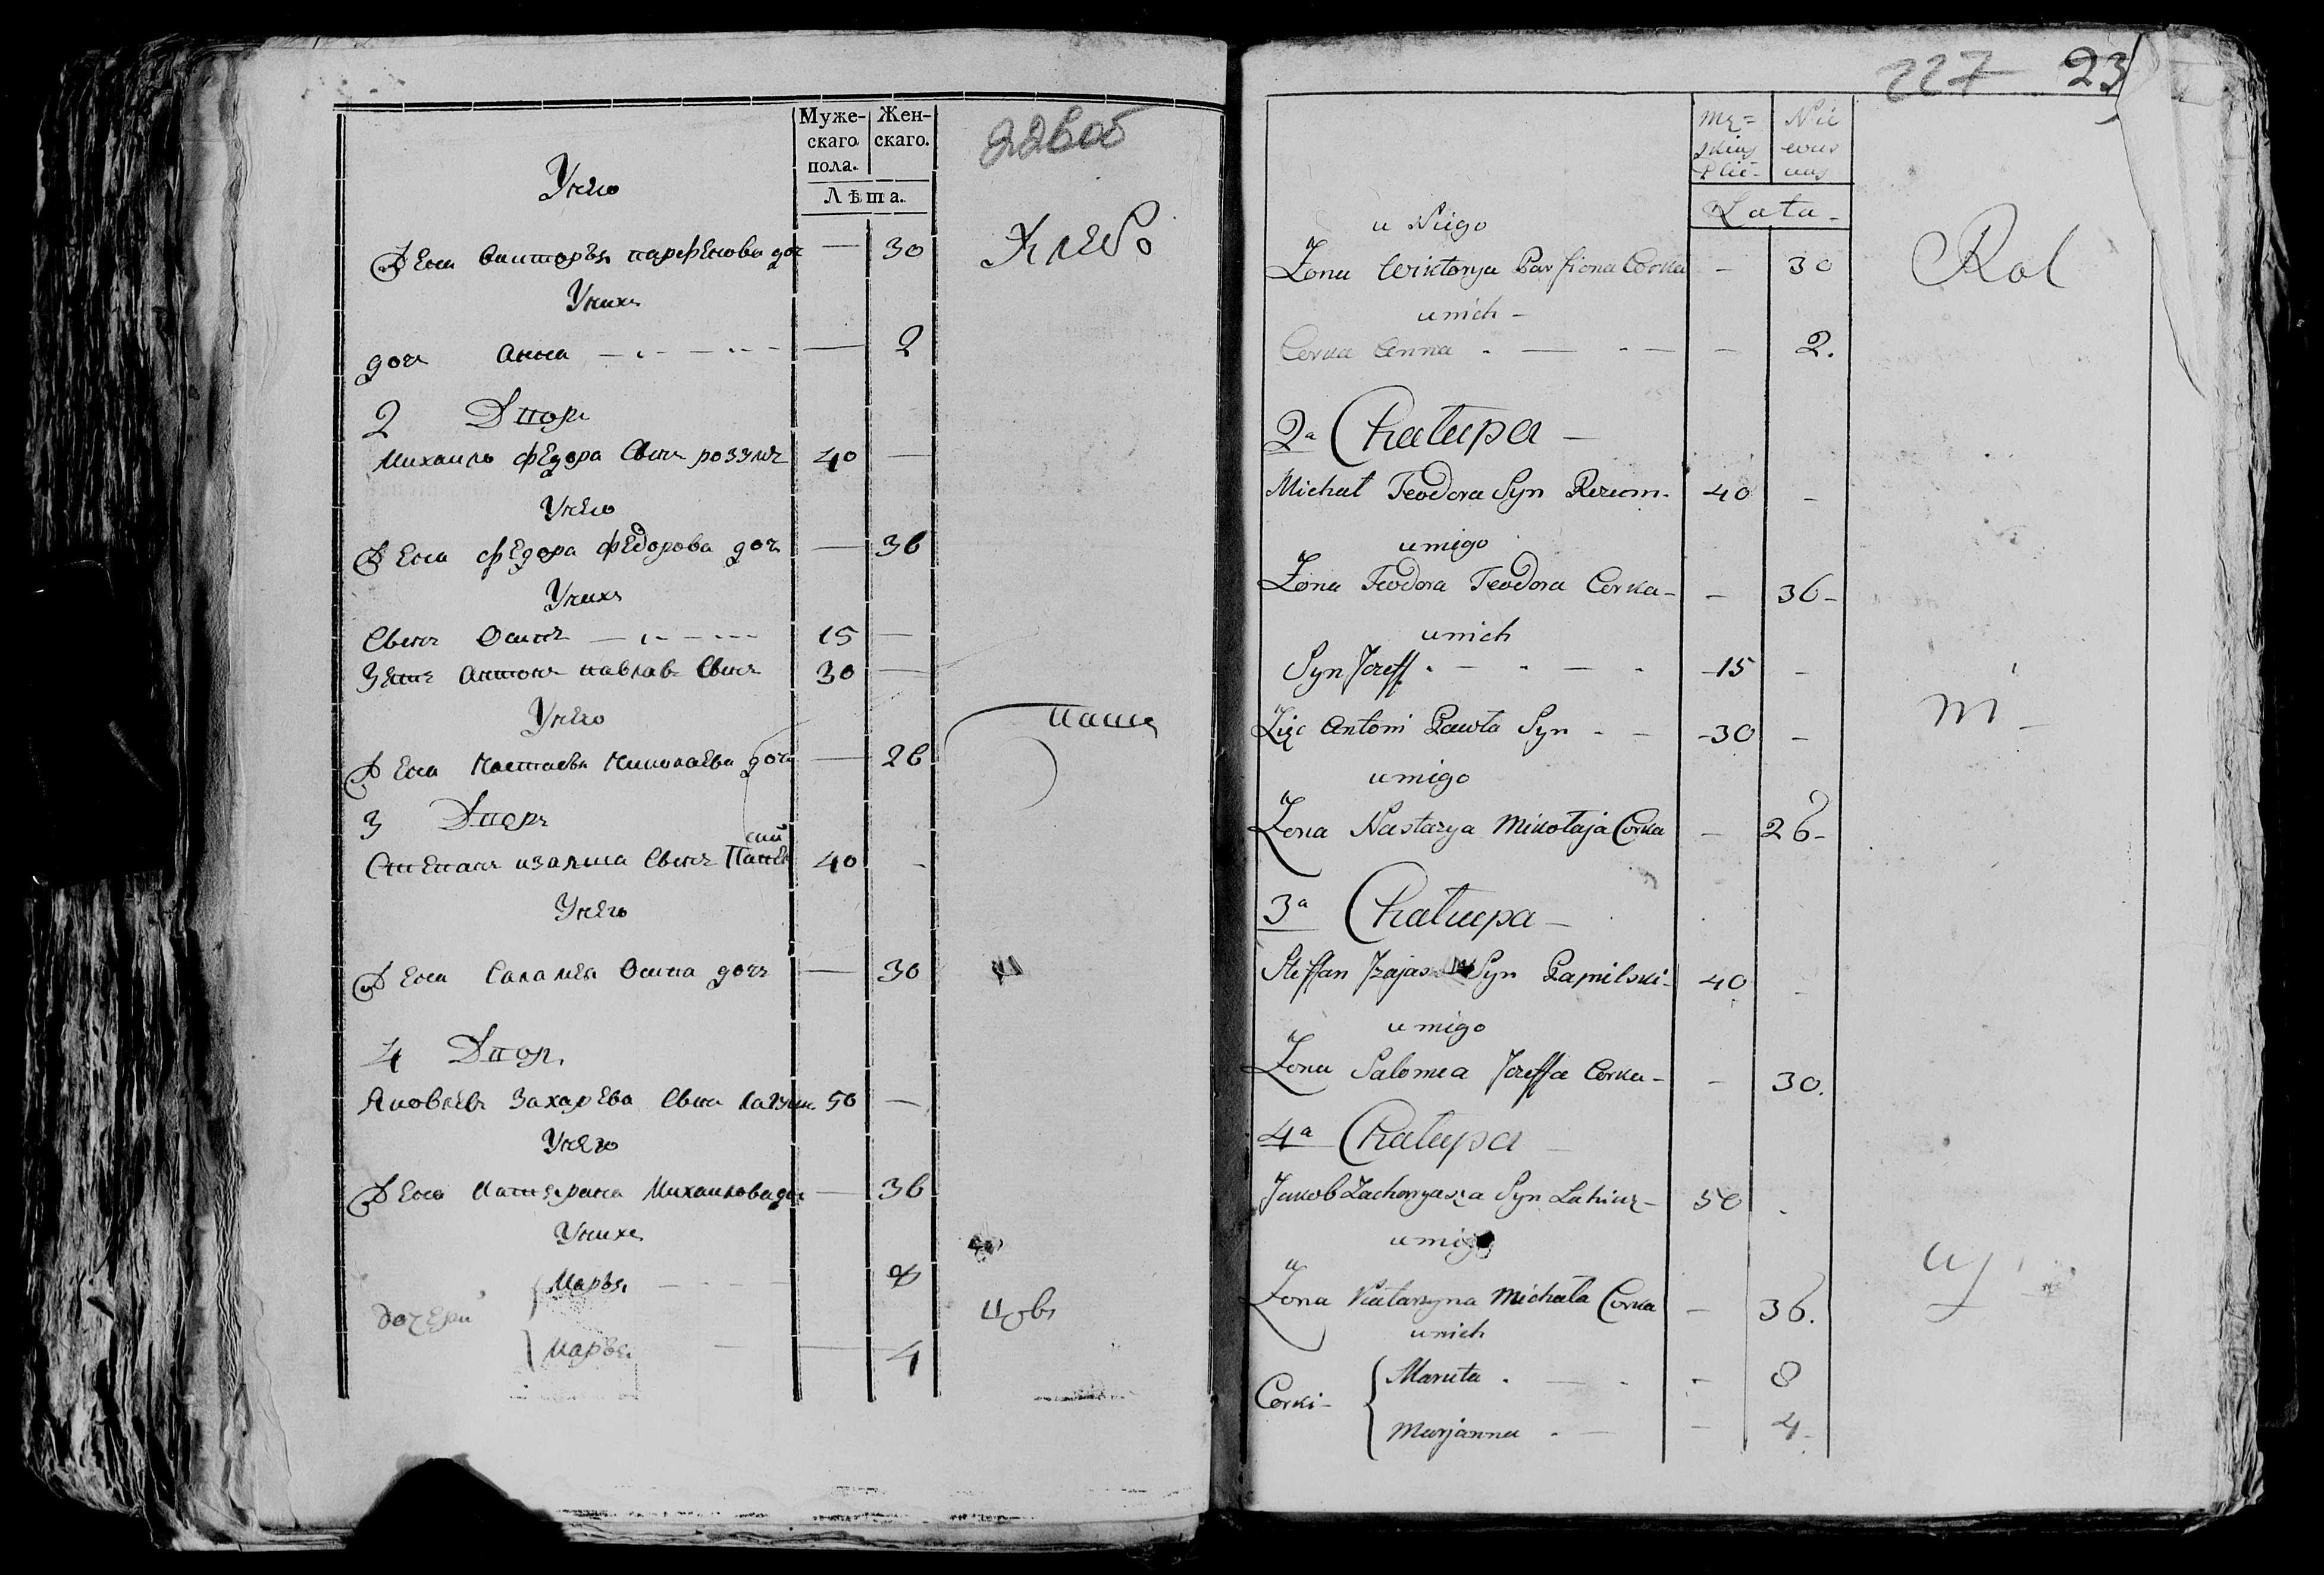 Муже-
скаго
пола.
Жен-
скаго.
Лѣта.
Унего
Жена Викторья парфенова доч — 30
Хлебо
Унихъ
доч Анна — 2
2 Дворъ
Михаилъ федора Сынъ 40 —
Унего
Жена федора федорова доч — 36
Унихъ
Сынъ Осипъ 15 —
Зять Антонъ павлав Сынъ 30 —
Унего
паше
Жена Настасья Николаева доч — 26
3 Дворъ
Степанъ Сынъ 40 -
Унего
Жена Саламея Осипа доч — 30
4 Дворъ
Яковлевъ Захарева Сынъ 50 —
Унего
Жена Катерина Михаилова доч — 36
Унихъ
дочери { Марья 8
Марья — 4
227 23
Mę=
skiey
Płci-
Nie
wies
ciey
Lata -
u Niego
Żona Wiktorya Parfiona Corka - 30
Rol
u nich -
Corka Anna - 2.
2a Chałupa -
Michał Teodora Syn 40 -
u niego
Żona Teodora Teodora Corka - - 36 -
u nich
Syn Jozeff 15 -
Zięć Antoni Pawła Syn - 30 -
u niego
Żona Nastazya Mikołaja Corka - 26 -
3a Chałupa -
Steffan Izajasza Syn 40 -
u niego
Żona Salomea Jozeffa Corka - - 30.
4a Chałupa
Jakob Zacharyasza Syn 50 .
u niego
Żona Katarzyna Michała Corka - 36.
u nich
Corki - { Maruta - 8
Marjanna - 4